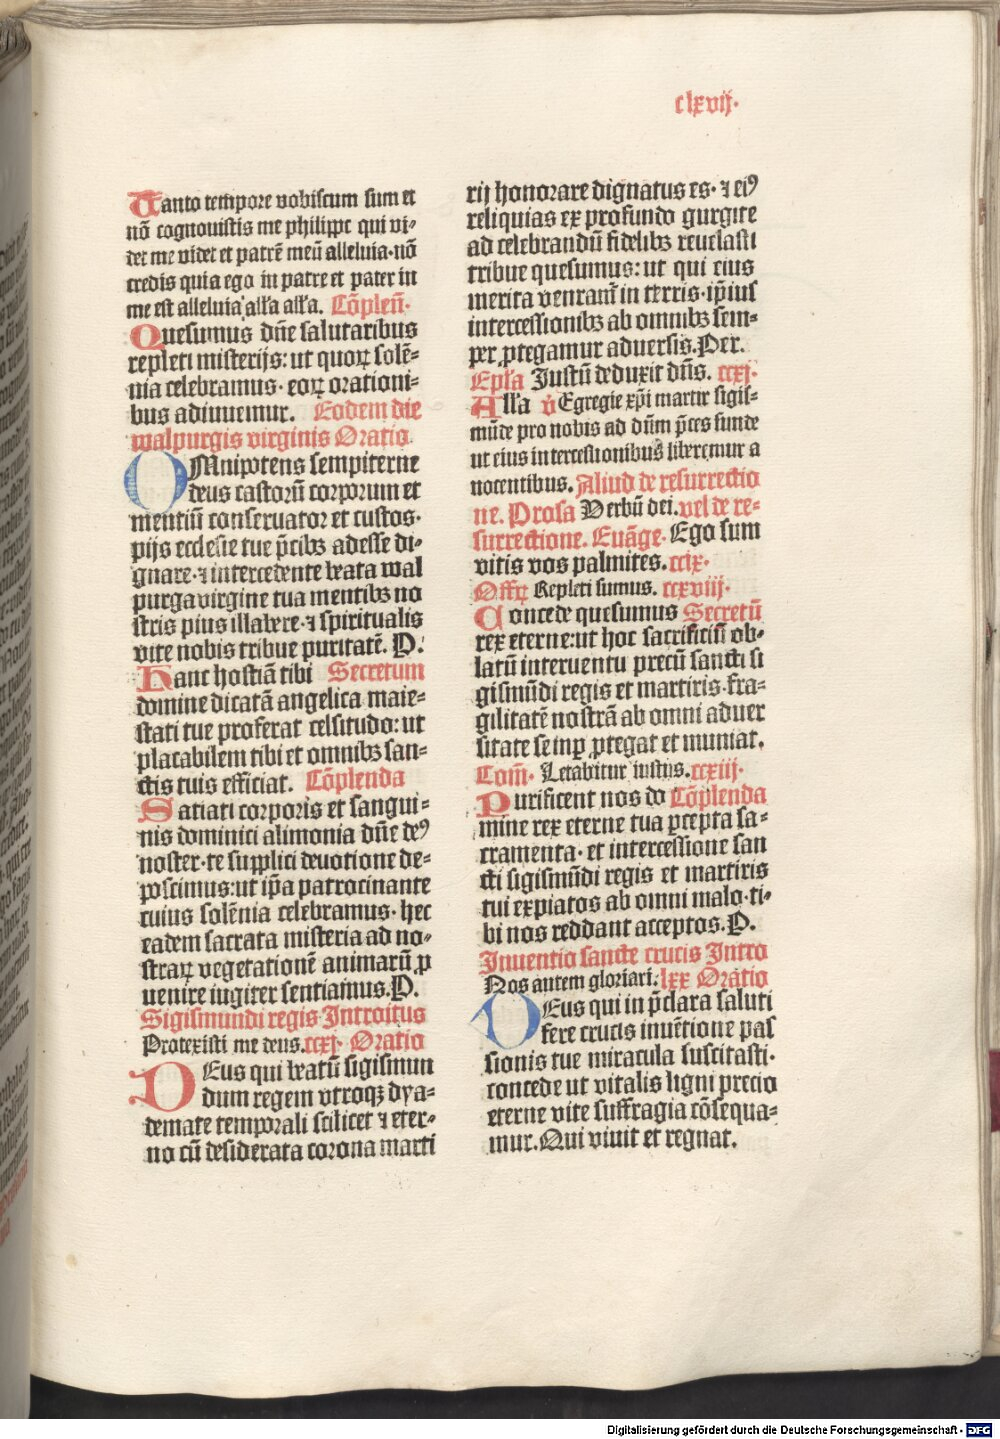 clxvij.
Tanto tempore vobiscum sum et
nō cognouistis me philippe qui vi-
det me videt et patrē meū alleluia.nō
credis quia ego in patre et pater in
me est alleluia alľa alľa. Cōpleñ.
Quesumus dn̄e salutaribus
repleti misterijs: ut quoꝝ solē-
nia celebramus. eoꝝ orationi-
bus adiuuemur. Eodem die
walpurgis virginis Oratio.
OMnipotens sempiterne
deus castorū corporum et
mentiū conseruator et custos.
pijs ecclesie tue p̄cibꝫ adesse di-
gnare.⁊ intercedente beata wal
purga virgine tua mentibꝫ no
stris pius illabere.⁊ spiritualis
vite nobis tribue puritatē. P.
Hanc hostiā tibi Secretum
domine dicatā angelica maie-
stati tue proferat celsitudo: ut
placabilem tibi et omnibꝫ san-
ctis tuis efficiat. Cōplenda
Satiati corporis et sangui-
nis dominici alimonia dn̄e deꝰ
noster.te supplici deuotione de-
poscimus: ut ip̄a patrocinante
cuius solēnia celebramus. hec
eadem sacrata misteria ad no-
straꝝ vegetationē animarū ꝓ
uenire iugiter sentiamus. P.
Sigismundi regis Introitus
Protexisti me deus. ccxj. Oratio
DEus qui beatū sigismun
dum regem vtroqꝫ dya-
demate temporali scilicet ⁊ eter-
no cū desiderata corona marti
rij honorare dignatus es. ⁊ eiꝰ
reliquias ex profundo gurgite
ad celebrandū fidelibꝫ reuelasti
tribue quesumus: ut qui eius
merita venranť in terris. ip̄ius
intercessionibꝫ ab omnibꝫ sem-
per ꝓtegamur aduersis. Per.
Epľa Justū deduxit dn̄s. ccxj.
Alľa v̉ Egregie xp̄i martir sigis-
mūde pro nobis ad dn̄m p̄ces funde
ut eius intercessionibus liberemur a
nocentibus. Aliud de resurrectio
ne. Prosa Verbū dei. vel de re-
surrectione. Euāge. Ego sum
vitis vos palmites. ccix.
Offꝝ Repleti sumus. ccxviij.
Concede quesumus Secretū
rex eterne: ut hoc sacrificiū ob-
latū interuentu precū sancti si
gismūdi regis et martiris. fra-
gilitatē nostrā ab omni aduer
sitate semꝑ ꝓtegat et muniat.
Com̄. Letabitur iustus. ccxiij.
Purificent nos do Cōplenda
mine rex eterne tua ꝑcepta sa-
cramenta. et intercessione san
cti sigismūdi regis et martiris
tui expiatos ab omni malo. ti-
bi nos reddant acceptos. P.
Inuentio sancte crucis Intro
Nos autem gloriari: lxx Oratio
DEus qui in p̄clara saluti
fere crucis inuētione pas
sionis tue miracula suscitasti.
concede ut vitalis ligni precio
eterne vite suffragia cōsequa-
mur. Qui viuit et regnat.
Digitalisierung gefördert durch die Deutsche Forschungsgemeinschaft - DFG